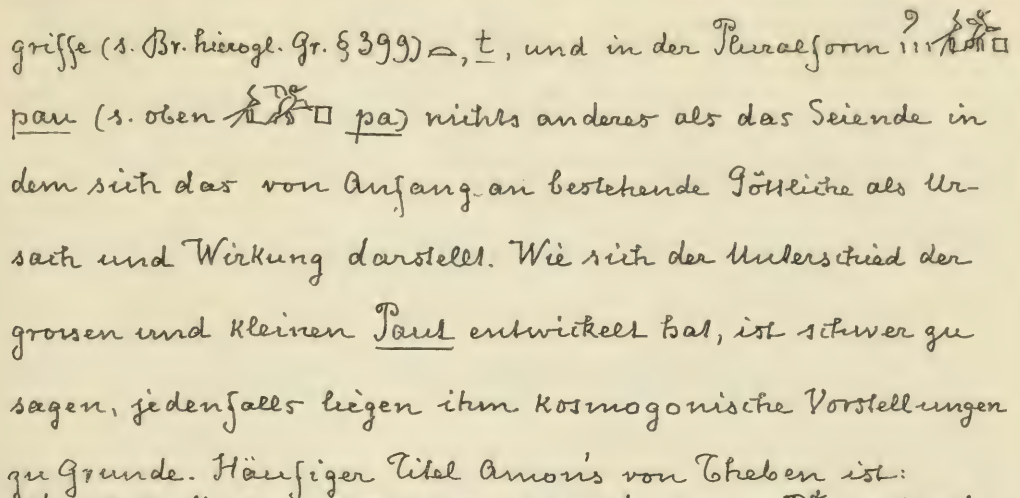 griffe (s. Br. hierogl. Gr. § 399) 𓏏, t, und in der Pluralform
pau (s. oben pa) nichts anderes als das Seiende in
dem sich das von Anfang an bestehende Göttliche als Ur-
sach und Wirkung darstellt. Wie sich der Unterschied der
grossen und Kleinen Paut entwickelt hat, ist schwer zu
sagen, jedenfalls liegen ihm Kosmogonische Vorstellungen
zu Grunde. Häufiger Titel Amon's von Theben ist: